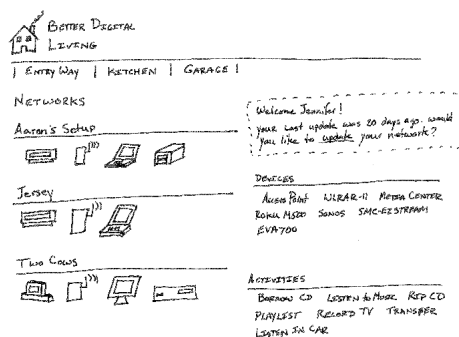 BETTER DIGITAL
LIVING
| ENTRY WAY | KITCHEN | GARAGE |
NETWORKS
Aaron's Setup
Jersey
Two Cows
Welcome Jennifer!
your last update was 20 days ago. would
you like to update your network?
DEVICES
Access Point WLRAR-11 MEDIA CENTER
ROKU M500 SONOS SMC-EZSTREAM
EVA700
ACTIVITIES
BORROW CD LISTEN to MUSIC RIP CD
PLAYLIST RECORD TV TRANSFER
LISTEN IN CAR